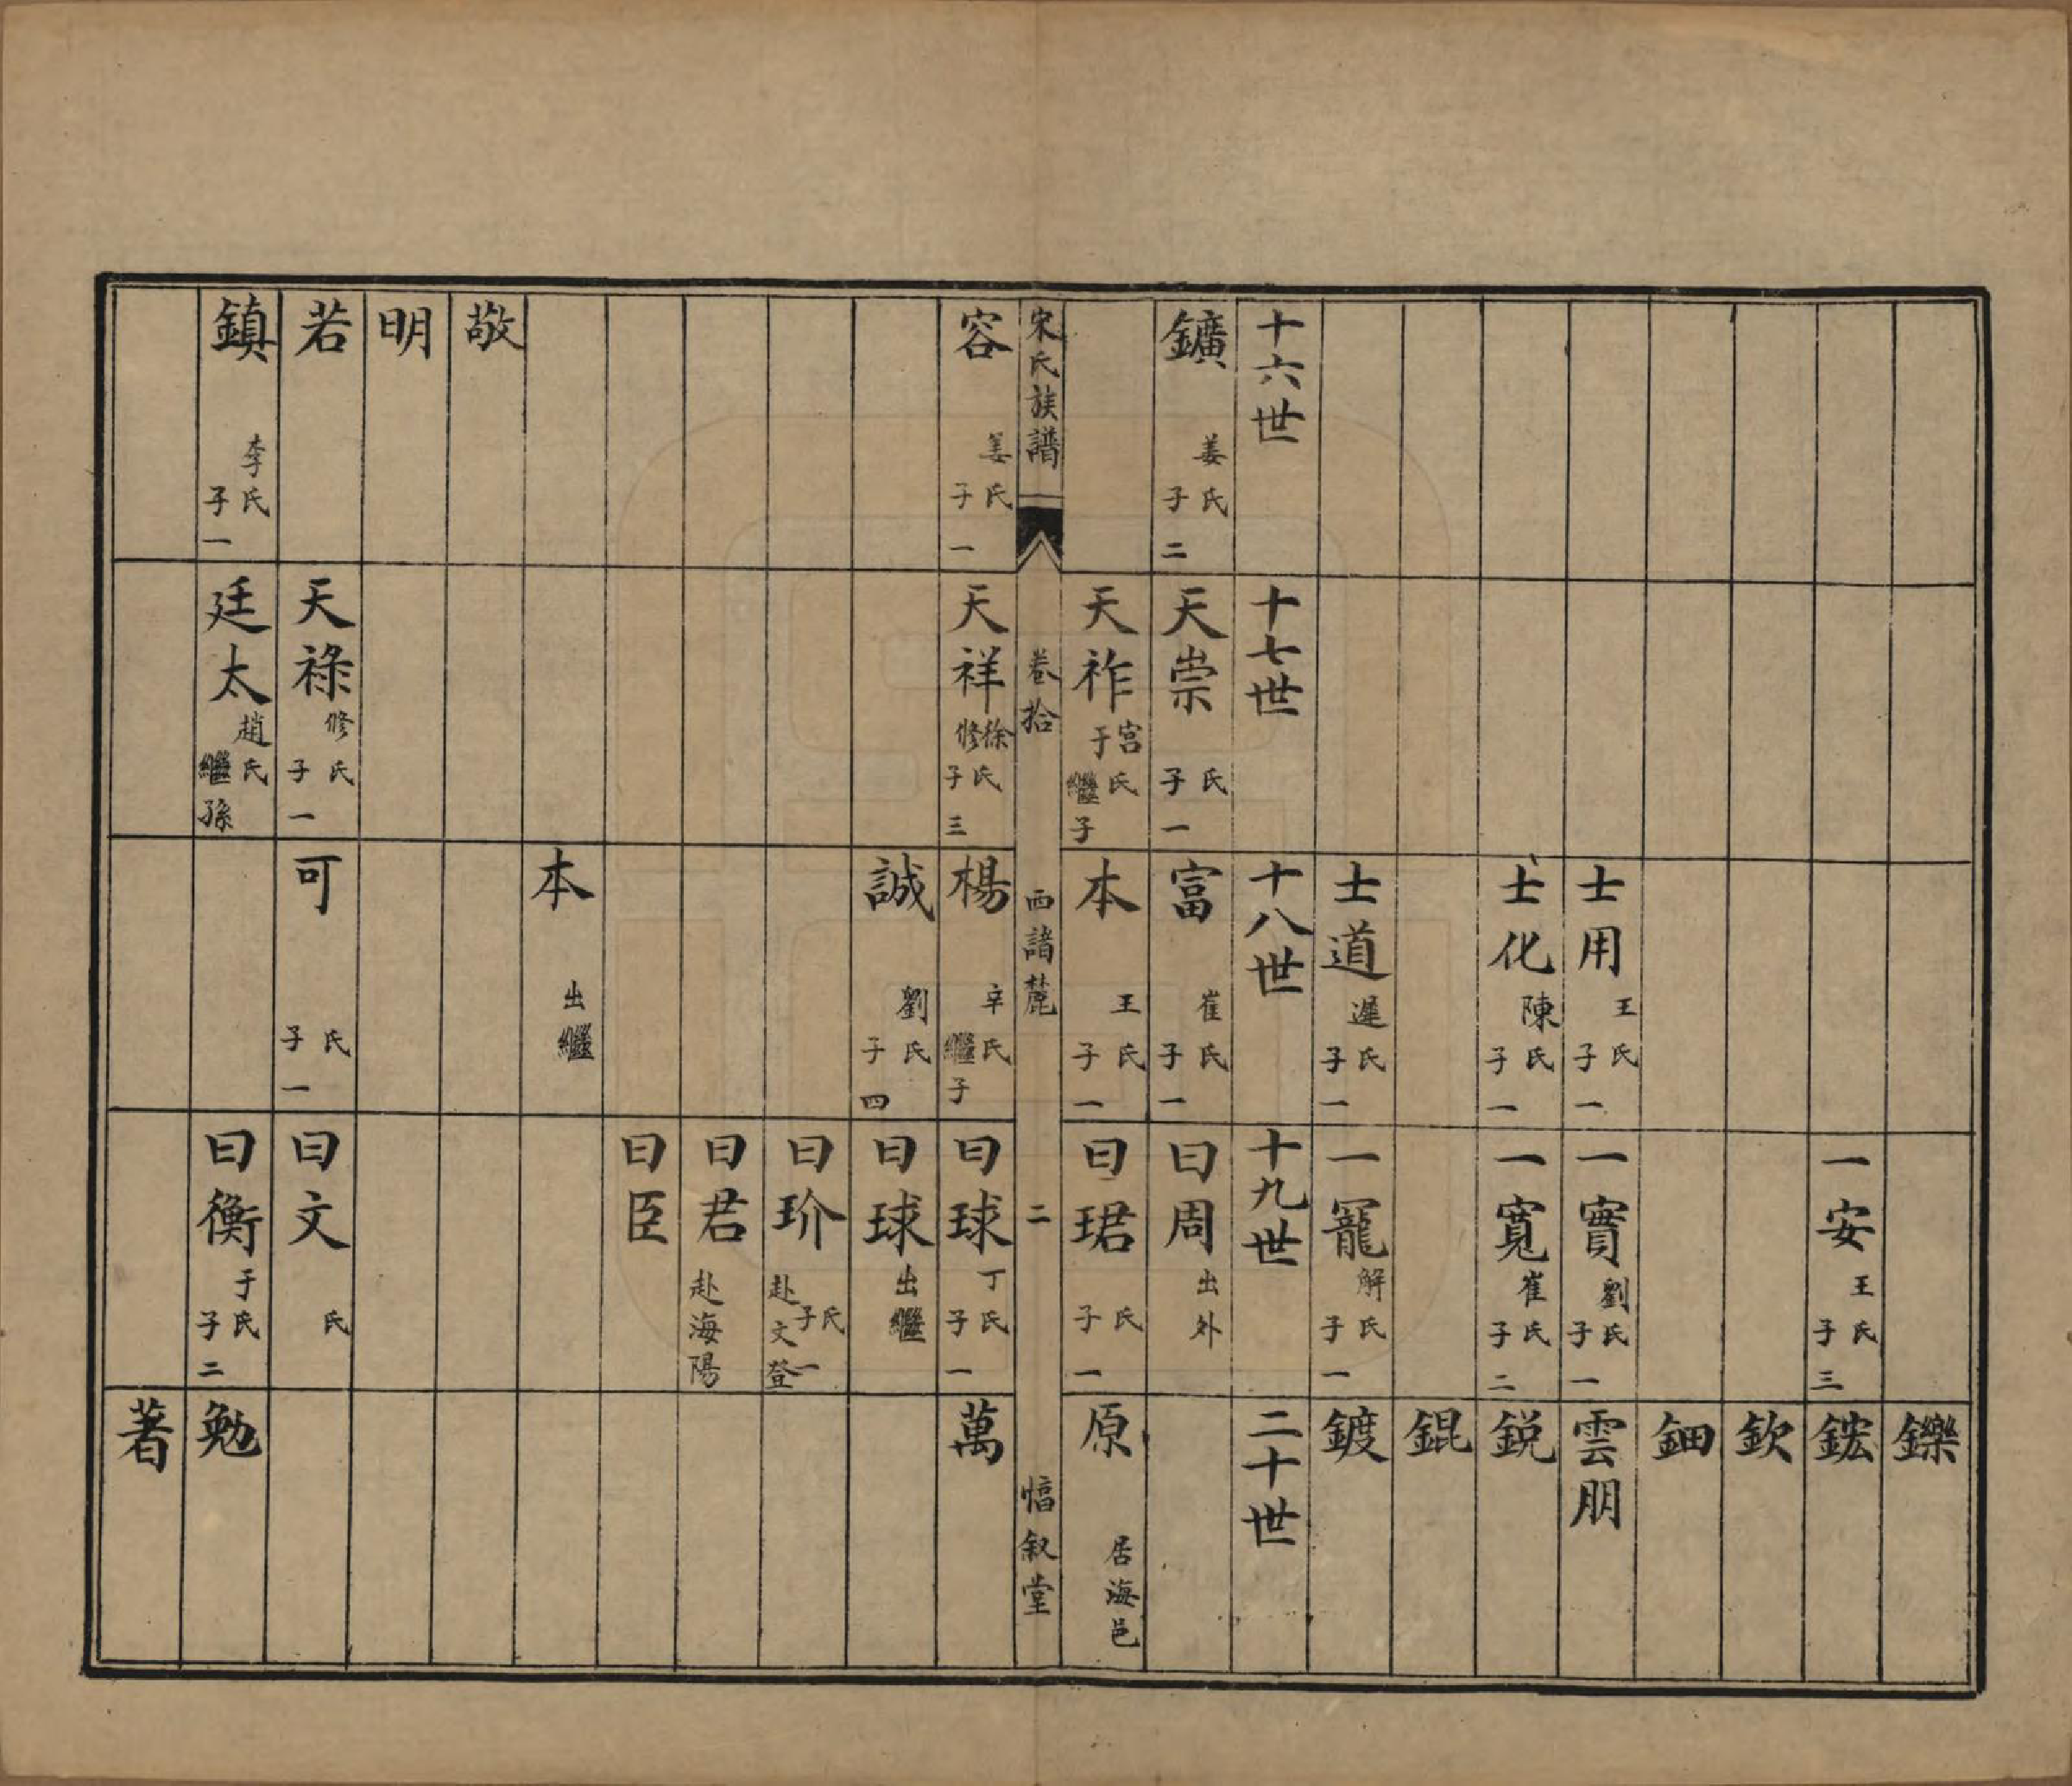 鑠
一安 王氏 子三
鋐
欽
鈿
士用 王氏 子一
一實 劉氏 子一
雲朋
士化 陳氏 子一
一寬 崔氏 子二
鋭
錕
士道 遲氏 子一
一寵 解氏 子一
鍍
十六世
十七世
十八世
十九世
二十世
鑛 姜氏 子二
天崇 氏 子一
富 崔氏 子一
曰周 出外
天祚 宮于氏 繼子
本 王氏 子一
曰珺 氏 子一
原 居海邑
宋氏族譜
卷拾
西諸麓
二
惇叙堂
容 姜氏 子一
天祥 徐修氏 子三
楊 辛氏 繼子
曰球 丁氏 子一
萬
誠 劉氏 子四
曰球 出繼
曰玠 氏 子一 赴文登
曰君 赴海陽
曰臣
本 出繼
敬
明
若
天祿 修氏 子一
可 氏 子一
曰文 氏
鎮 李氏 子一
廷太 趙氏 繼孫
曰衡 于氏 子二
勉
著